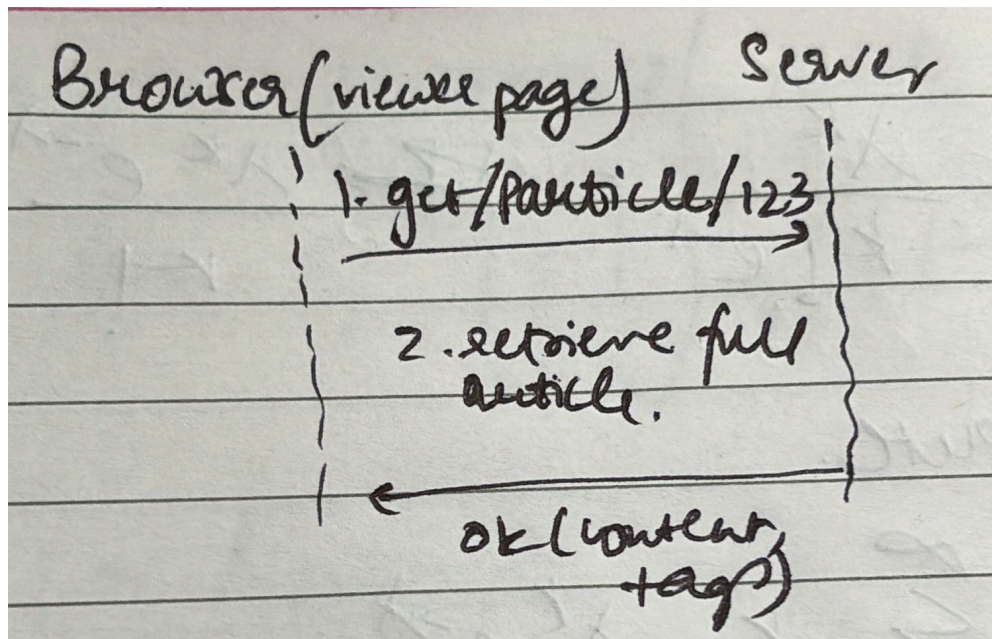 Browser (viewer page)
Server
1. get/particle/123
2. retrieve full
article.
ok (content,
tags)